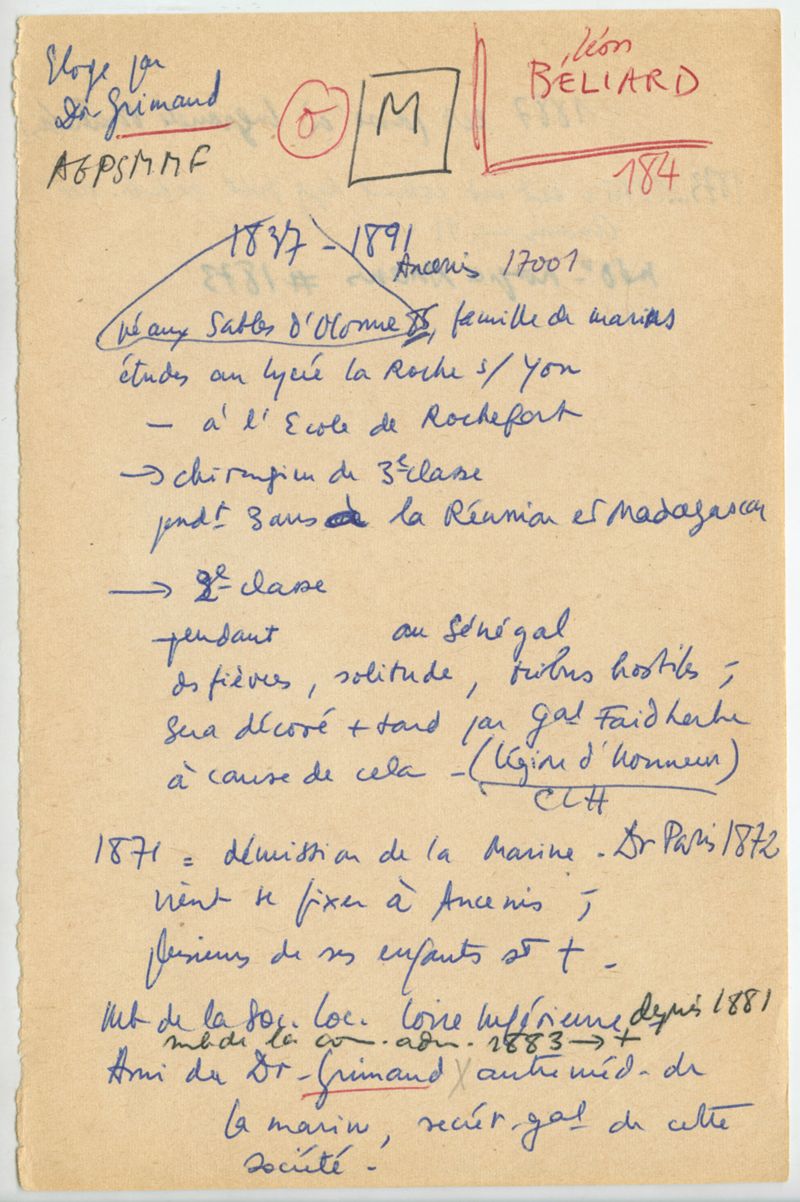 Eloge par
Dr Grimaud
AGPSMMF
M
Léon
BÉLIARD
184
1837 - 1891
Ancenis 17001
né aux Sables d'Olonne, famille de marins
études au lycée la Roche s/ Yon
- à l'Ecole de Rochefort
→ chirurgien de 3e classe
pendt 3 ans à la Réunion et Madagascar
→ 2e classe
pendant au Sénégal
des fièvres, solitude, tribus hostiles -,
sera décoré + tard par Gal Faidherbe
à cause de cela - (légion d'honneur)
CLH
1871 = démission de la Marine - Dr Paris 1872
vient se fixer à Ancenis -,
plusieurs de ses enfants st + -
Mb de la Soc. Loc. Loire Inférieure depuis 1881
mb de la com. adm. 1883 → +
Ami du Dr Grimaud X autre méd. de
la marine, secrét. gal de cette
société -